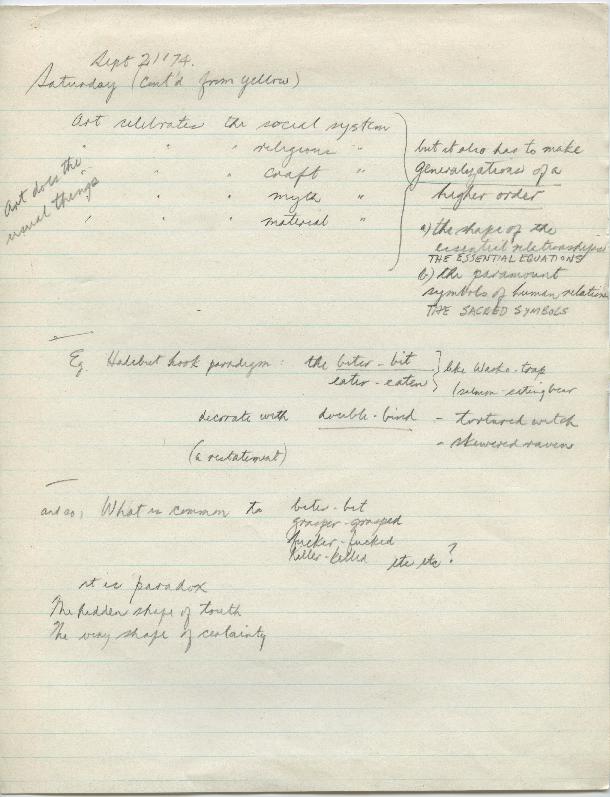 Sept 21/'74.
Saturday (Cont'd from yellow)
Art celebrates the social system
" " " religious "
" " " craft "
" " " myth "
" " " material "
Art does the
usual things
but it also has to make
generalizations of a
higher order
a) the shape of the
essential relationships
THE ESSENTIAL EQUATIONS
b) the paramount
symbols of human relation
THE SACRED SYMBOLS
Eg. Halibut hook paradigm: the biter - bit
eater - eaten
like Wasko-trap
/ salmon-eating bear
decorate with double-bind - tortured witch
- skewered raven
(a restatement)
and so, What is common to biter-bit
grasper-grasped
fucker-fucked
killer-killed etc etc?
it is paradox
The hidden shape of truth
The very shape of certainty